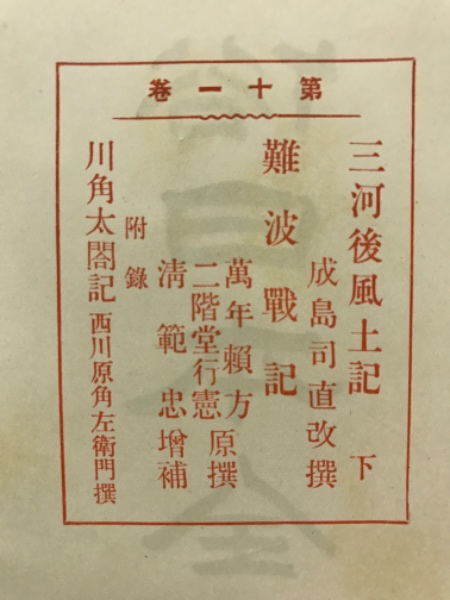 第十一卷
三河後風土記 下
成島司直改撰
難波戰記
萬年賴方
二階堂行憲 原撰
淸範忠增補
附錄
川角太閤記 西川原角左衛門撰